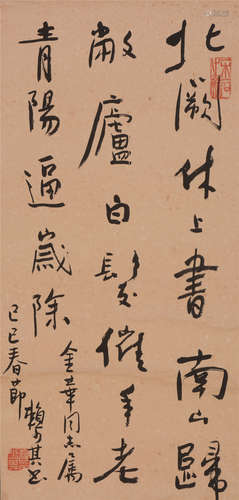 北闕休上書南山歸
敝廬白髮催年老
青陽逼歲除
金華同志屬
己巳春節賴少其書